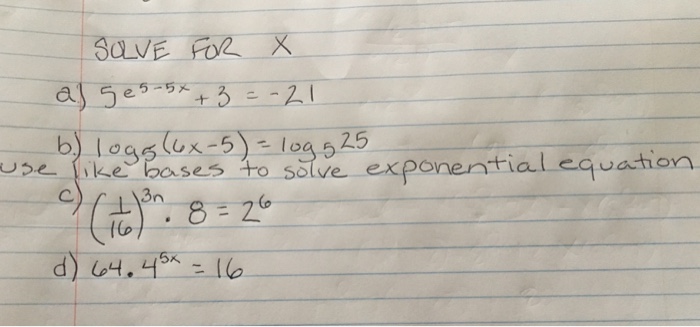 SOLVE FOR X
a) 5e^5-5x + 3 = -21
b) log₅(6x-5) = log₅25
use like bases to solve exponential equation
c) (1/16)^3n · 8 = 2^6
d) 64 · 4^5x = 16